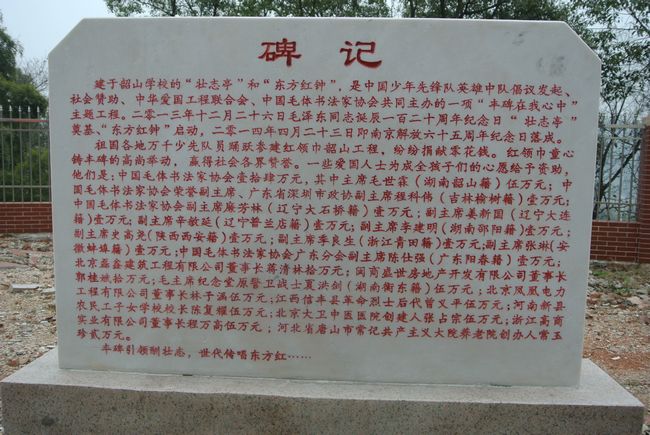 碑记
建于韶山学校的“壮志亭”和“东方红钟”，是中国少年先锋队英雄中队倡议发起、
社会赞助、中华爱国工程联合会、中国毛体书法家协会共同主办的一项“丰碑在我心中”
主题工程。二〇一三年十二月二十六日毛泽东同志诞辰一百二十周年纪念日“壮志亭”
奠基、“东方红钟”启动，二〇一四年四月二十三日即南京解放六十五周年纪念日落成。
祖国各地万千少先队员踊跃参建红领巾韶山工程，纷纷捐献零花钱。红领巾童心
铸丰碑的高尚举动，赢得社会各界赞誉。一些爱国人士为成全孩子们的心愿给予资助，
他们是：中国毛体书法家协会壹拾肆万元，其中主席毛世霖（湖南韶山籍）伍万元；中
国毛体书法家协会荣誉副主席、广东省深圳市政协副主席程科伟（吉林榆树籍）壹万元；
中国毛体书法家协会副主席麻芳林（辽宁大石桥籍）壹万元；副主席姜新国（辽宁大连
籍）壹万元；副主席辛敏延（辽宁普兰店籍）壹万元；副主席李建明（湖南邵阳籍）壹万元；
副主席史高尧（陕西西安籍）壹万元；副主席李良生（浙江青田籍）壹万元；副主席张琳（安
徽蚌埠籍）壹万元；中国毛体书法家协会广东分会副主席陈仕强（广东阳春籍）壹万元；
北京磊鑫建筑工程有限公司董事长蒋清林拾万元；闽商盛世房地产开发有限公司董事长
郭桂斌拾万元；毛主席纪念堂原警卫战士夏洪剑（湖南衡东籍）伍万元；北京凤凰电力
工程有限公司董事长林于满伍万元；江西信丰县革命烈士后代曾义平伍万元；河南新县
农民工子女学校校长陈复耀伍万元；北京大卫中医医院创建人张占宗伍万元；浙江高商
实业有限公司董事长程万高伍万元；河北省唐山市常记共产主义大院养老院创办人常玉
珍贰万元。
丰碑引领酬壮志，世代传唱东方红……